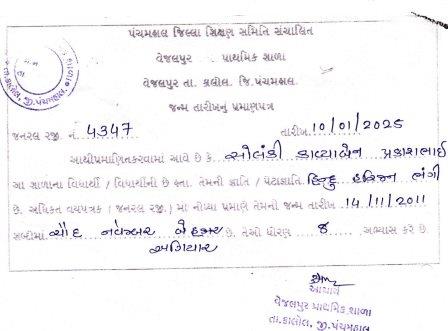 પંચમહાલ જિલ્લા શિક્ષણ સમિતિ સંચાલિત
વેજલપુર પ્રાથમિક શાળા
વેજલપુર તા. કાલોલ. જિ.પંચમહાલ.
જન્મ તારીખનું પ્રમાણપત્ર
જનરલ રજી. નં 4347 તારીખ 10/01/2025
આથીપ્રમાણિતકરવામાં આવે છે કે સોલંકી કાવ્યાબેન પ્રકાશભાઈ
આ શાળાના વિદ્યાર્થી / વિદ્યાર્થીની છે હતા. તેમની જ્ઞાતિ / પેટાજ્ઞાતિ હિન્દુ હરિજન ભંગી
છે. અધિકત વયપત્રક ( જનરલ રજી.) માં નોંધ્યા પ્રમાણે તેમનો જન્મ તારીખ 14/11/2011
શબ્દોમાં ચૌદ નવેમ્બર બે હજાર અગિયાર છે. તેઓ ધોરણ 8 અભ્યાસ કરે છે.
આચાર્ય
વેજલપુર પ્રાથમિક શાળા
તા.કાલોલ, જી.પંચમહાલ
તા.કાલોલ, જી.પંચમહાલ